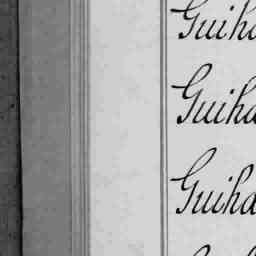 Guiha
Guiha
Guiha